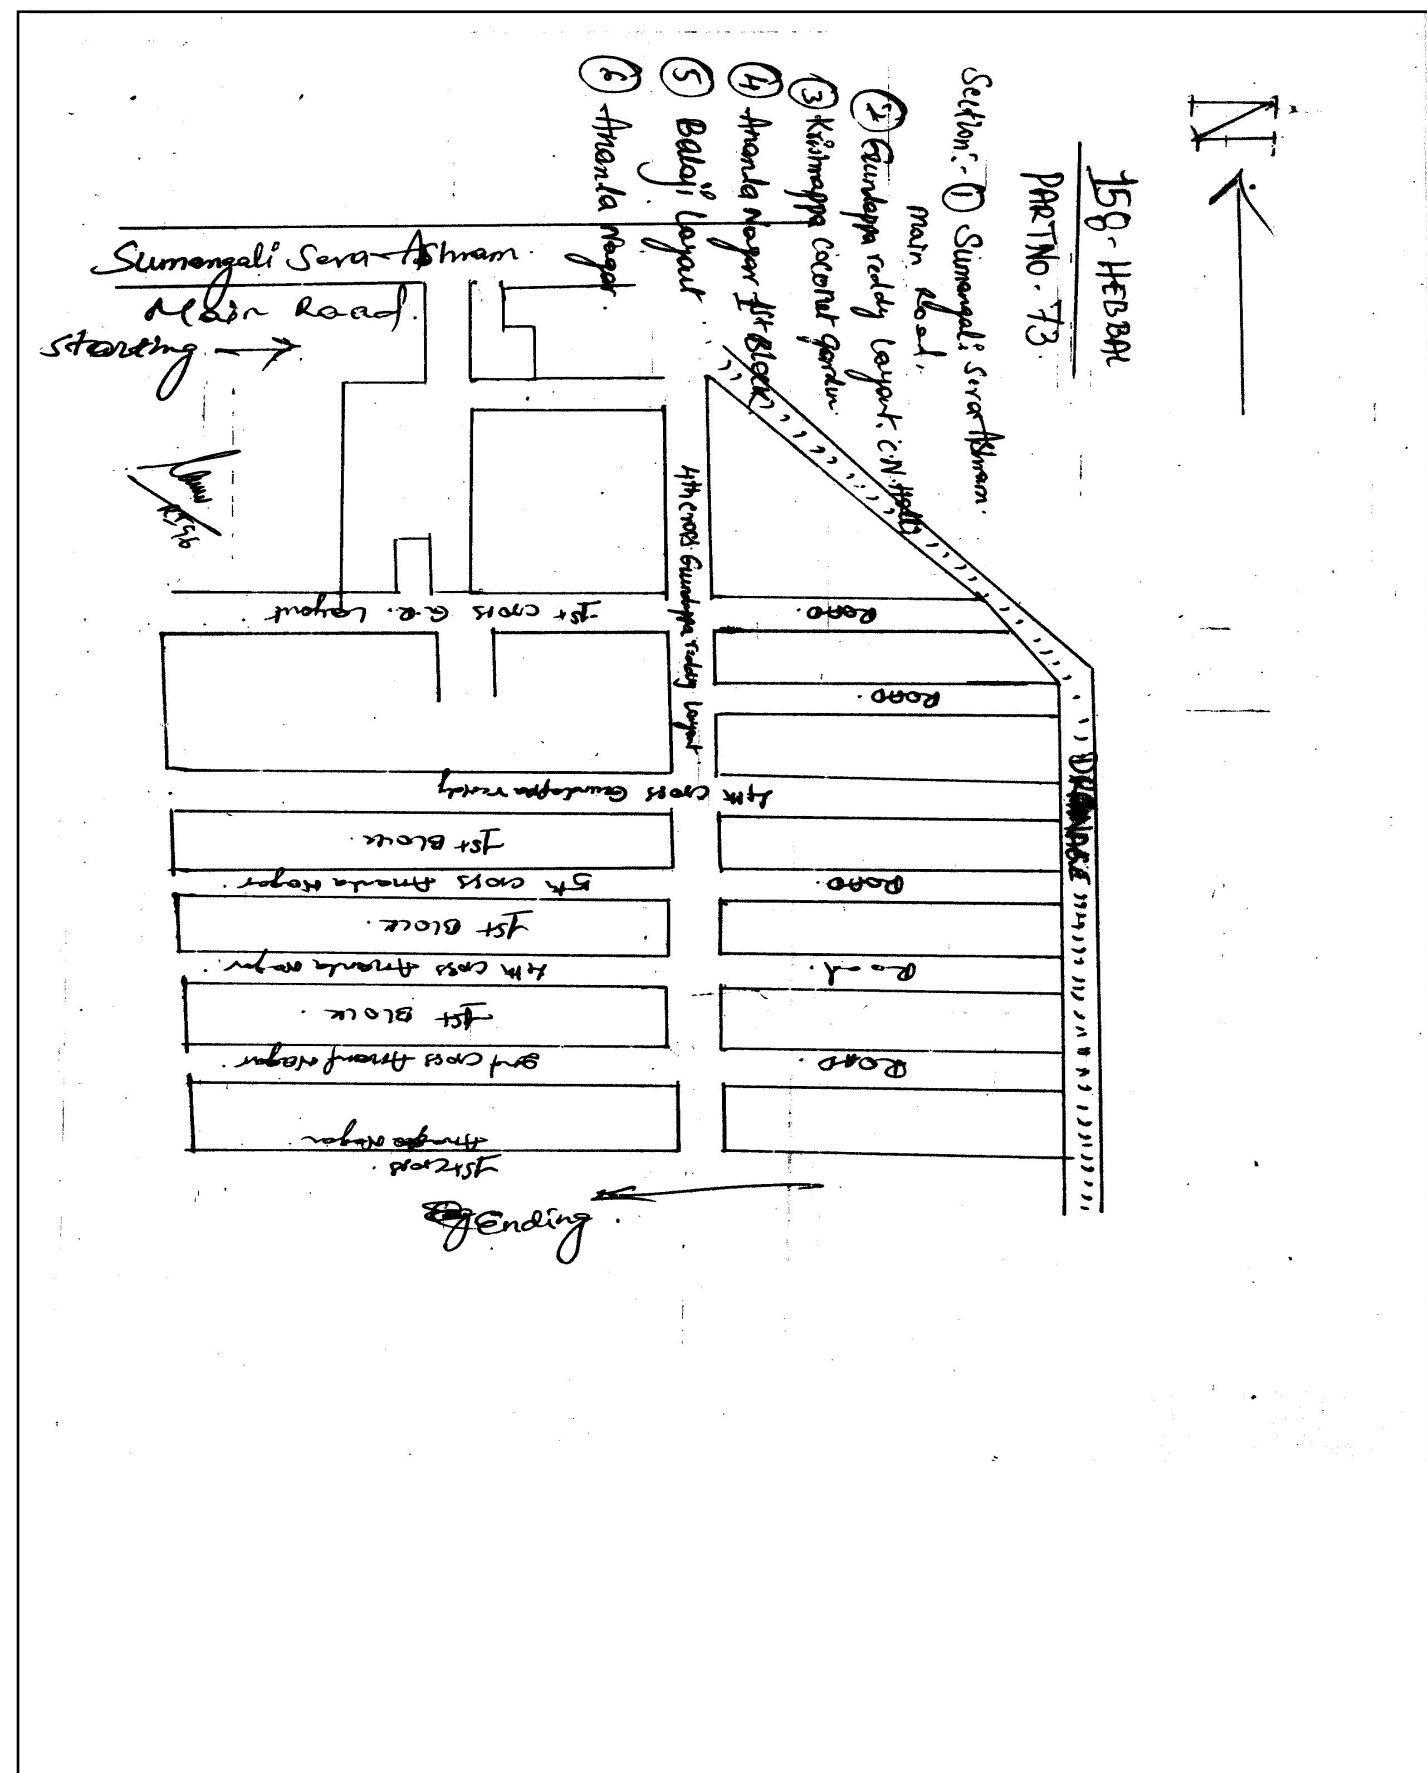 N
158-HEBBAL
PART NO. 73.
Section:- ① Sumangali Seva Ashram.
main Road,
② Gundappa reddy Layout, C.N. Halli
③ Krishnappa Coconet Garden
④ Ananda Nagar Ist Block
⑤ Balaji Layout
⑥ Ananda Nagar.
Sumangali Seva Ashram.
Main Road.
Starting →
4th cross Gundappa reddy Layout
1st cross G.R. Layout
ROAD.
ROAD.
4th cross Gundappa reddy
DRAINAGE
1st BLOCK.
5th cross Ananda Nagar.
ROAD.
1st BLOCK.
4th cross Ananda Nagar.
Road.
1st BLOCK.
ROAD.
1st cross
Ananda Nagar
Ending.